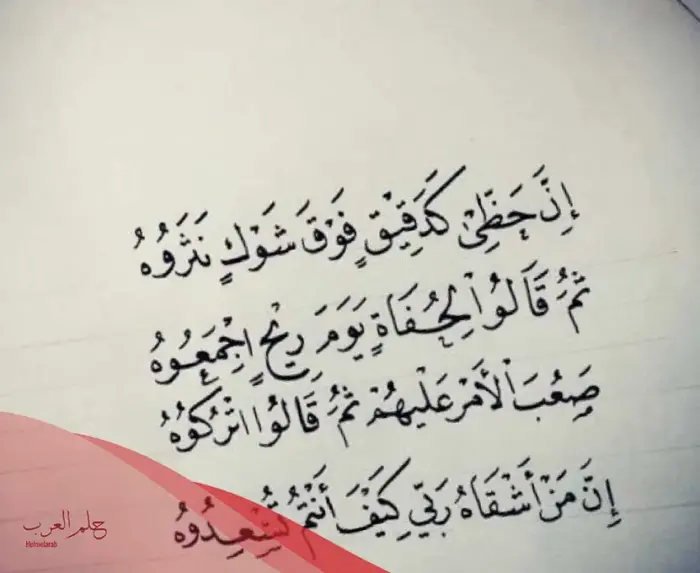 إِنَّ حَظِّيْ كَدَقِيْقٍ فَوْقَ شَوْكٍ نَثَرُوْهُ
ثُمَّ قَالُوْا لِحُفَاةٍ يَوَمَ رِيْحٍ اِجْمَعُوْهُ
صَعُبَ الْأَمْرُ عَلَيْهُمْ ثُمَّ قَالُوْا اتْرُكُوْهُ
إِنَّ مَنْ أَشْقَاهُ رَبِّيْ كَيْفَ أَنْتُمْ تُسْعِدُوْهُ
حلم العرب
Helmelarab